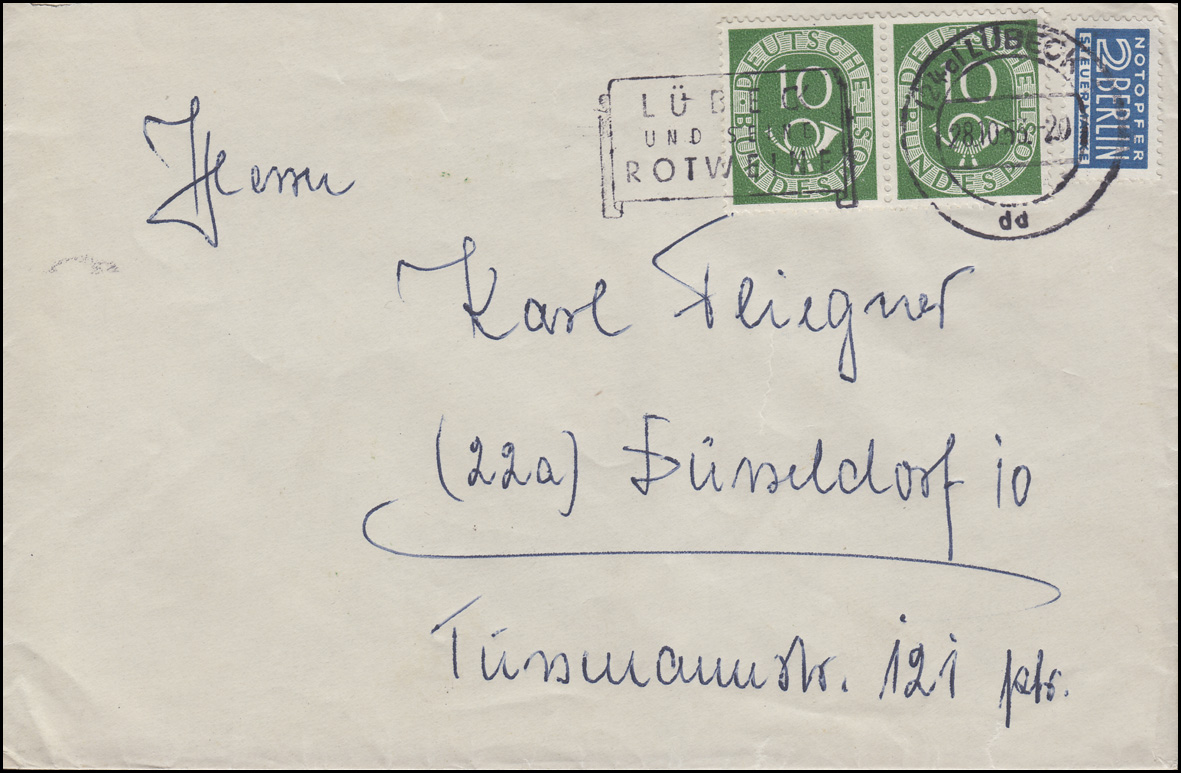 LÜBECK
UND SEINE
ROTWEINE
DEUTSCHE BUNDESPOST
10
DEUTSCHE BUNDESPOST
10
(24a) LÜBECK
28.10.53.-20
pp
NOTOPFER
2 BERLIN
STEUERMARKE
Herrn
Karl Fliegner
(22a) Düsseldorf 10
Tussmannstr. 121 ptr.